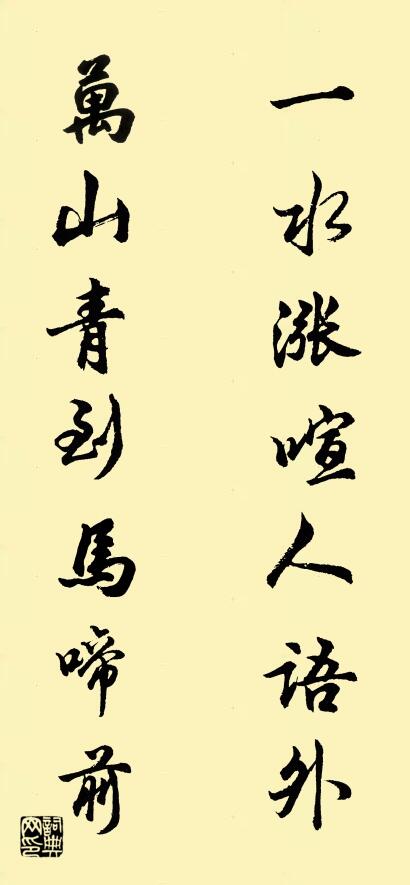 一水漲喧人語外
萬山青到馬啼前
詞典网印